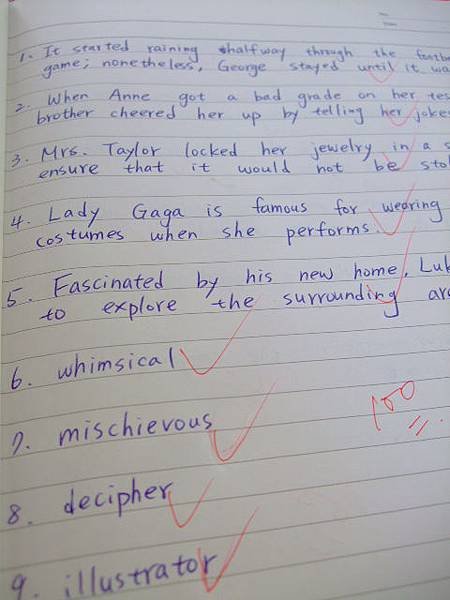 1. It started raining halfway through the
game; nonetheless, George stayed until it
2. When Anne got a bad grade on her
brother cheered her up by telling her
3. Mrs. Taylor locked her jewelry in a
ensure that it would not be
4. Lady Gaga is famous for wearing
costumes when she performs.
5. Fascinated by his new home,
to explore the surrounding
6. whimsical
7. mischievous
100
8. decipher
9. illustrator